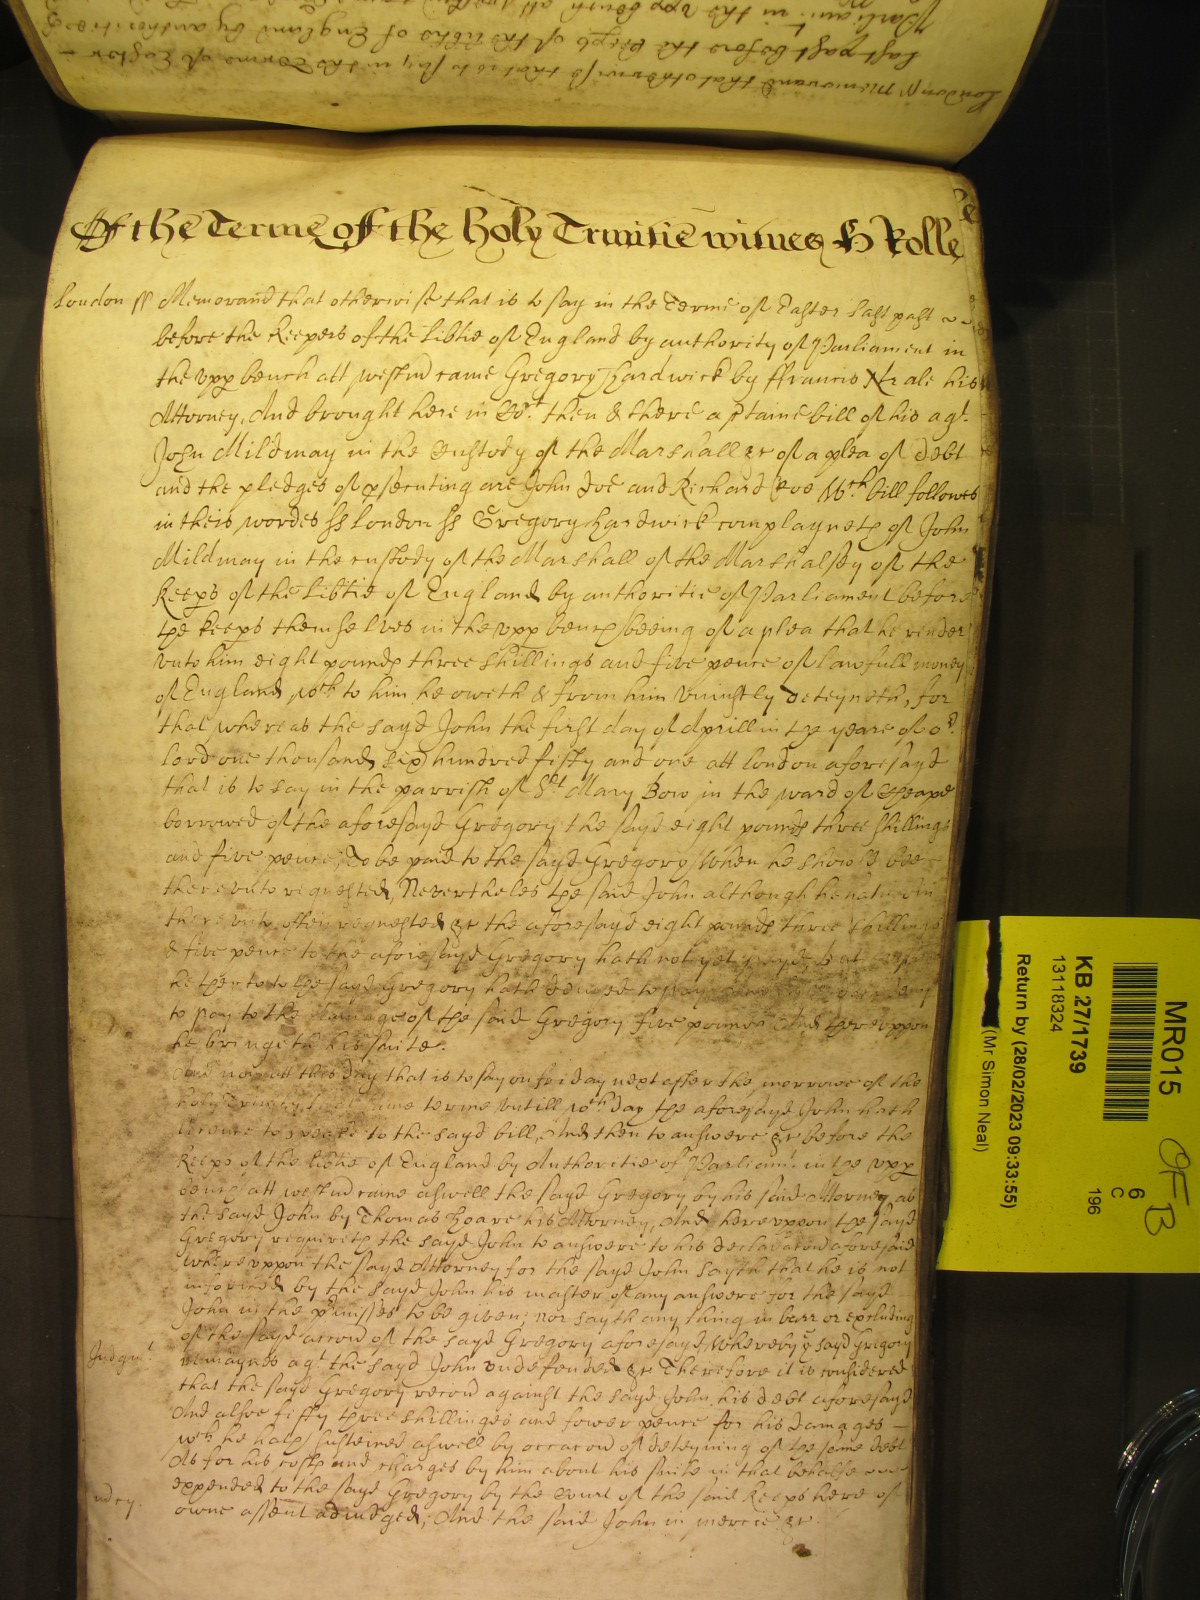 Of the Terme of the holy Trinitie witnes H Rolle
London ss Memorand that otherwise that is to say in the Terme of Easter last past
before the Keepers of the Libtie of England by authority of Parliament in
the upp bench att Westm came Gregory Hardwick by ffrancis his
Attorney, And brought here in Co.rt then & there a ptaine bill of his ag.t
John Mildmay in the Custody of the Marshall &c of a plea of Debt
and the pledges of psecuting are John Doe and Richard Roe W.ch bill followes
in theis wordes ss London ss Gregory Hardwick complayneth of John
Mildmay in the custody of the Marshall of the Marshalsey of the
Keeps of the Libtie of England by authoritie of Parliament before
the keeps themselves in the upp bench beeing of a plea that he render
unto him eight pounds three shillings and five pence of lawfull money
of England w.ch to him he oweth & from him uniustly deteyneth, for
that whereas the sayd John the first day of Aprill in the yeare of o.r
Lord one thousand six hundred fifty and one att London aforesayd
that is to say in the parrish of S.t Mary Bow in the ward of Cheape
borrowed of the aforesayd Gregory the sayd eight pounds three shillings
and five pence, To be paid to the sayd Gregory when he should bee
thereunto requested, Nevertheles the said John although he hath
thereunto often requested &c the aforesayd eight pounds three shillings
& five pence to the aforesayd Gregory hath not yet payd, but
hitherto to the sayd Gregory hath denyed to pay
to pay to the damage of the said Gregory five pounds And thereuppon
he bringeth his suite.
And now att this day that is to say on friday next after the morrowe of the
holy Trinity same terme untill w.ch day the aforesayd John hath
licence to speake to the sayd bill, And then to answere &c before the
Keeps of the libtie of England by Authoritie of Parliam.t in the upp
bench att westm came aswell the sayd Gregory by his said Attorney as
the sayd John by Thomas Hoare his Attorney, And hereuppon the sayd
Gregory requireth the sayd John to answere to his declaracon aforesaid
whereuppon the sayd Attorney for the sayd John sayth that he is not
informed by the sayd John his master of any answere for the sayd
John in the p.rmisses to be given, nor sayth any thing in barr or excluding
of the sayd accon of the sayd Gregory aforesayd Whereby y sayd Gregory
Judgm.t remaynes ag.t the sayd John undefended &c Therefore it is considered
that the sayd Gregory recov against the sayd John his debt aforesayd
And alsoe fifty three shillinges and fower pence for his damages
w.ch he hath susteined aswell by occacon of deteyning of the same debt
As for his costs and charges by him about his suite in that behalfe
expended to the sayd Gregory by the Court of the said Keeps here of
owne assent adiudged, And the said John in mercie &c.
MR015
KB 27/1739
13118324
Return by (28/02/2023 09:33:55)
(Mr Simon Neal)
6
C
196
OFB